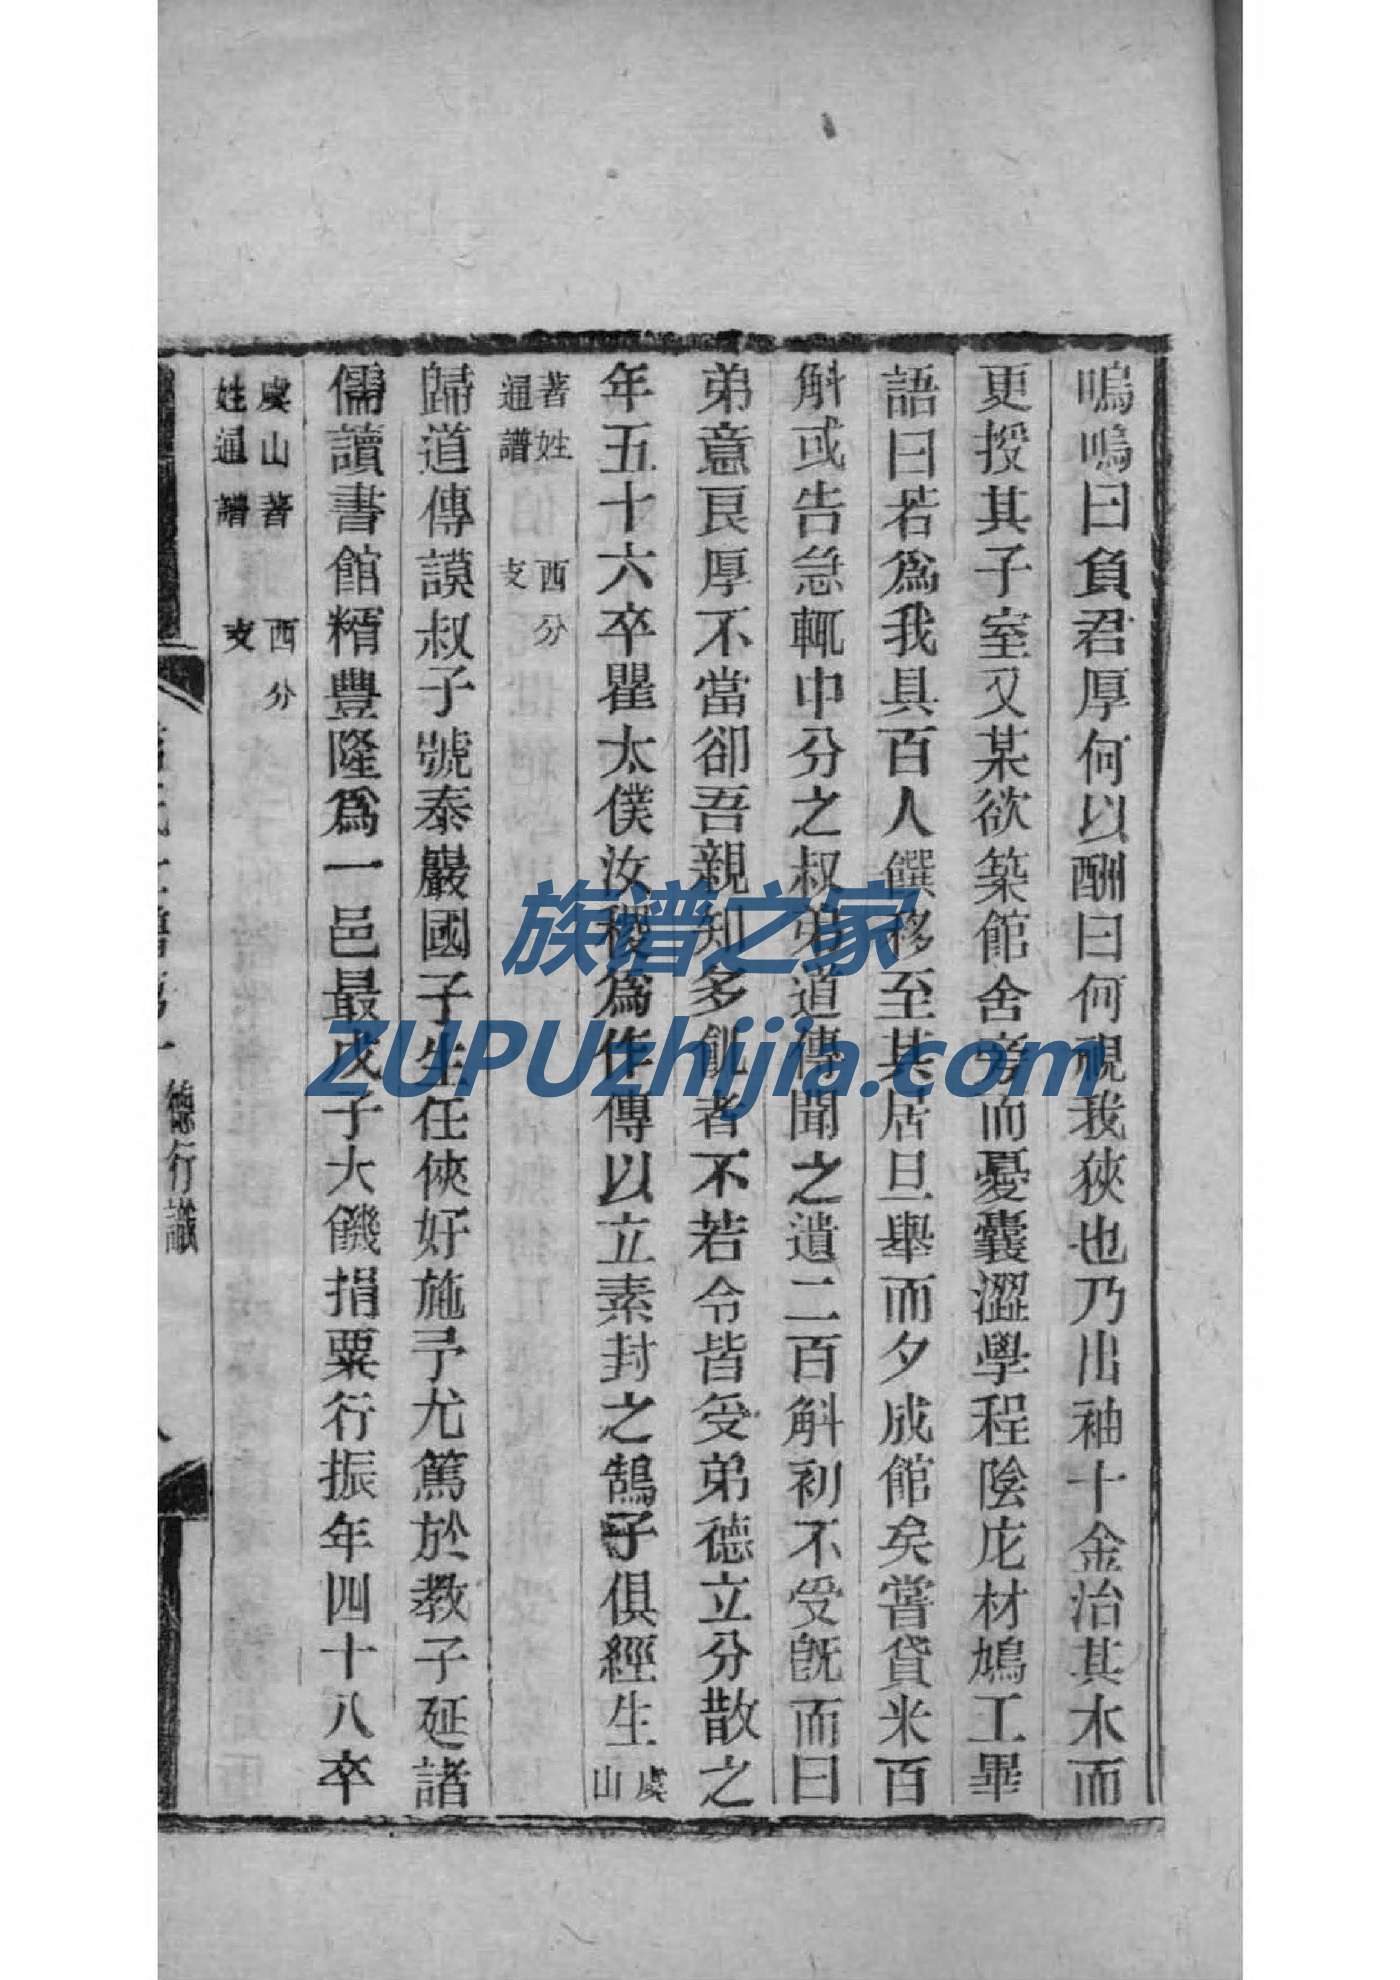 嗚嗚曰負君厚何以酬曰何視我狹也乃出袖十金治其木而
更授其子室又某欲築館舍旁而憂囊澀學程陰庀材鳩工畢
語曰若爲我具百人饌移至其居旦舉而夕成館矣嘗貸米百
斛或告急輒中分之叔弟道傳聞之遺二百斛初不受旣而曰
弟意良厚不當卻吾親知多飢者不若令皆受弟德立分散之
年五十六卒瞿太僕汝稷爲作傳以立素封之鵠子俱經生虞山
著姓通譜 西分支
歸道傳謨叔子號泰巖國子生任俠好施予尤篤於教子延諸
儒讀書館糈豐隆爲一邑最戊子大饑捐粟行振年四十八卒
虞山著姓通譜 西分支
德行議
族谱之家
ZUPUzhijia.com